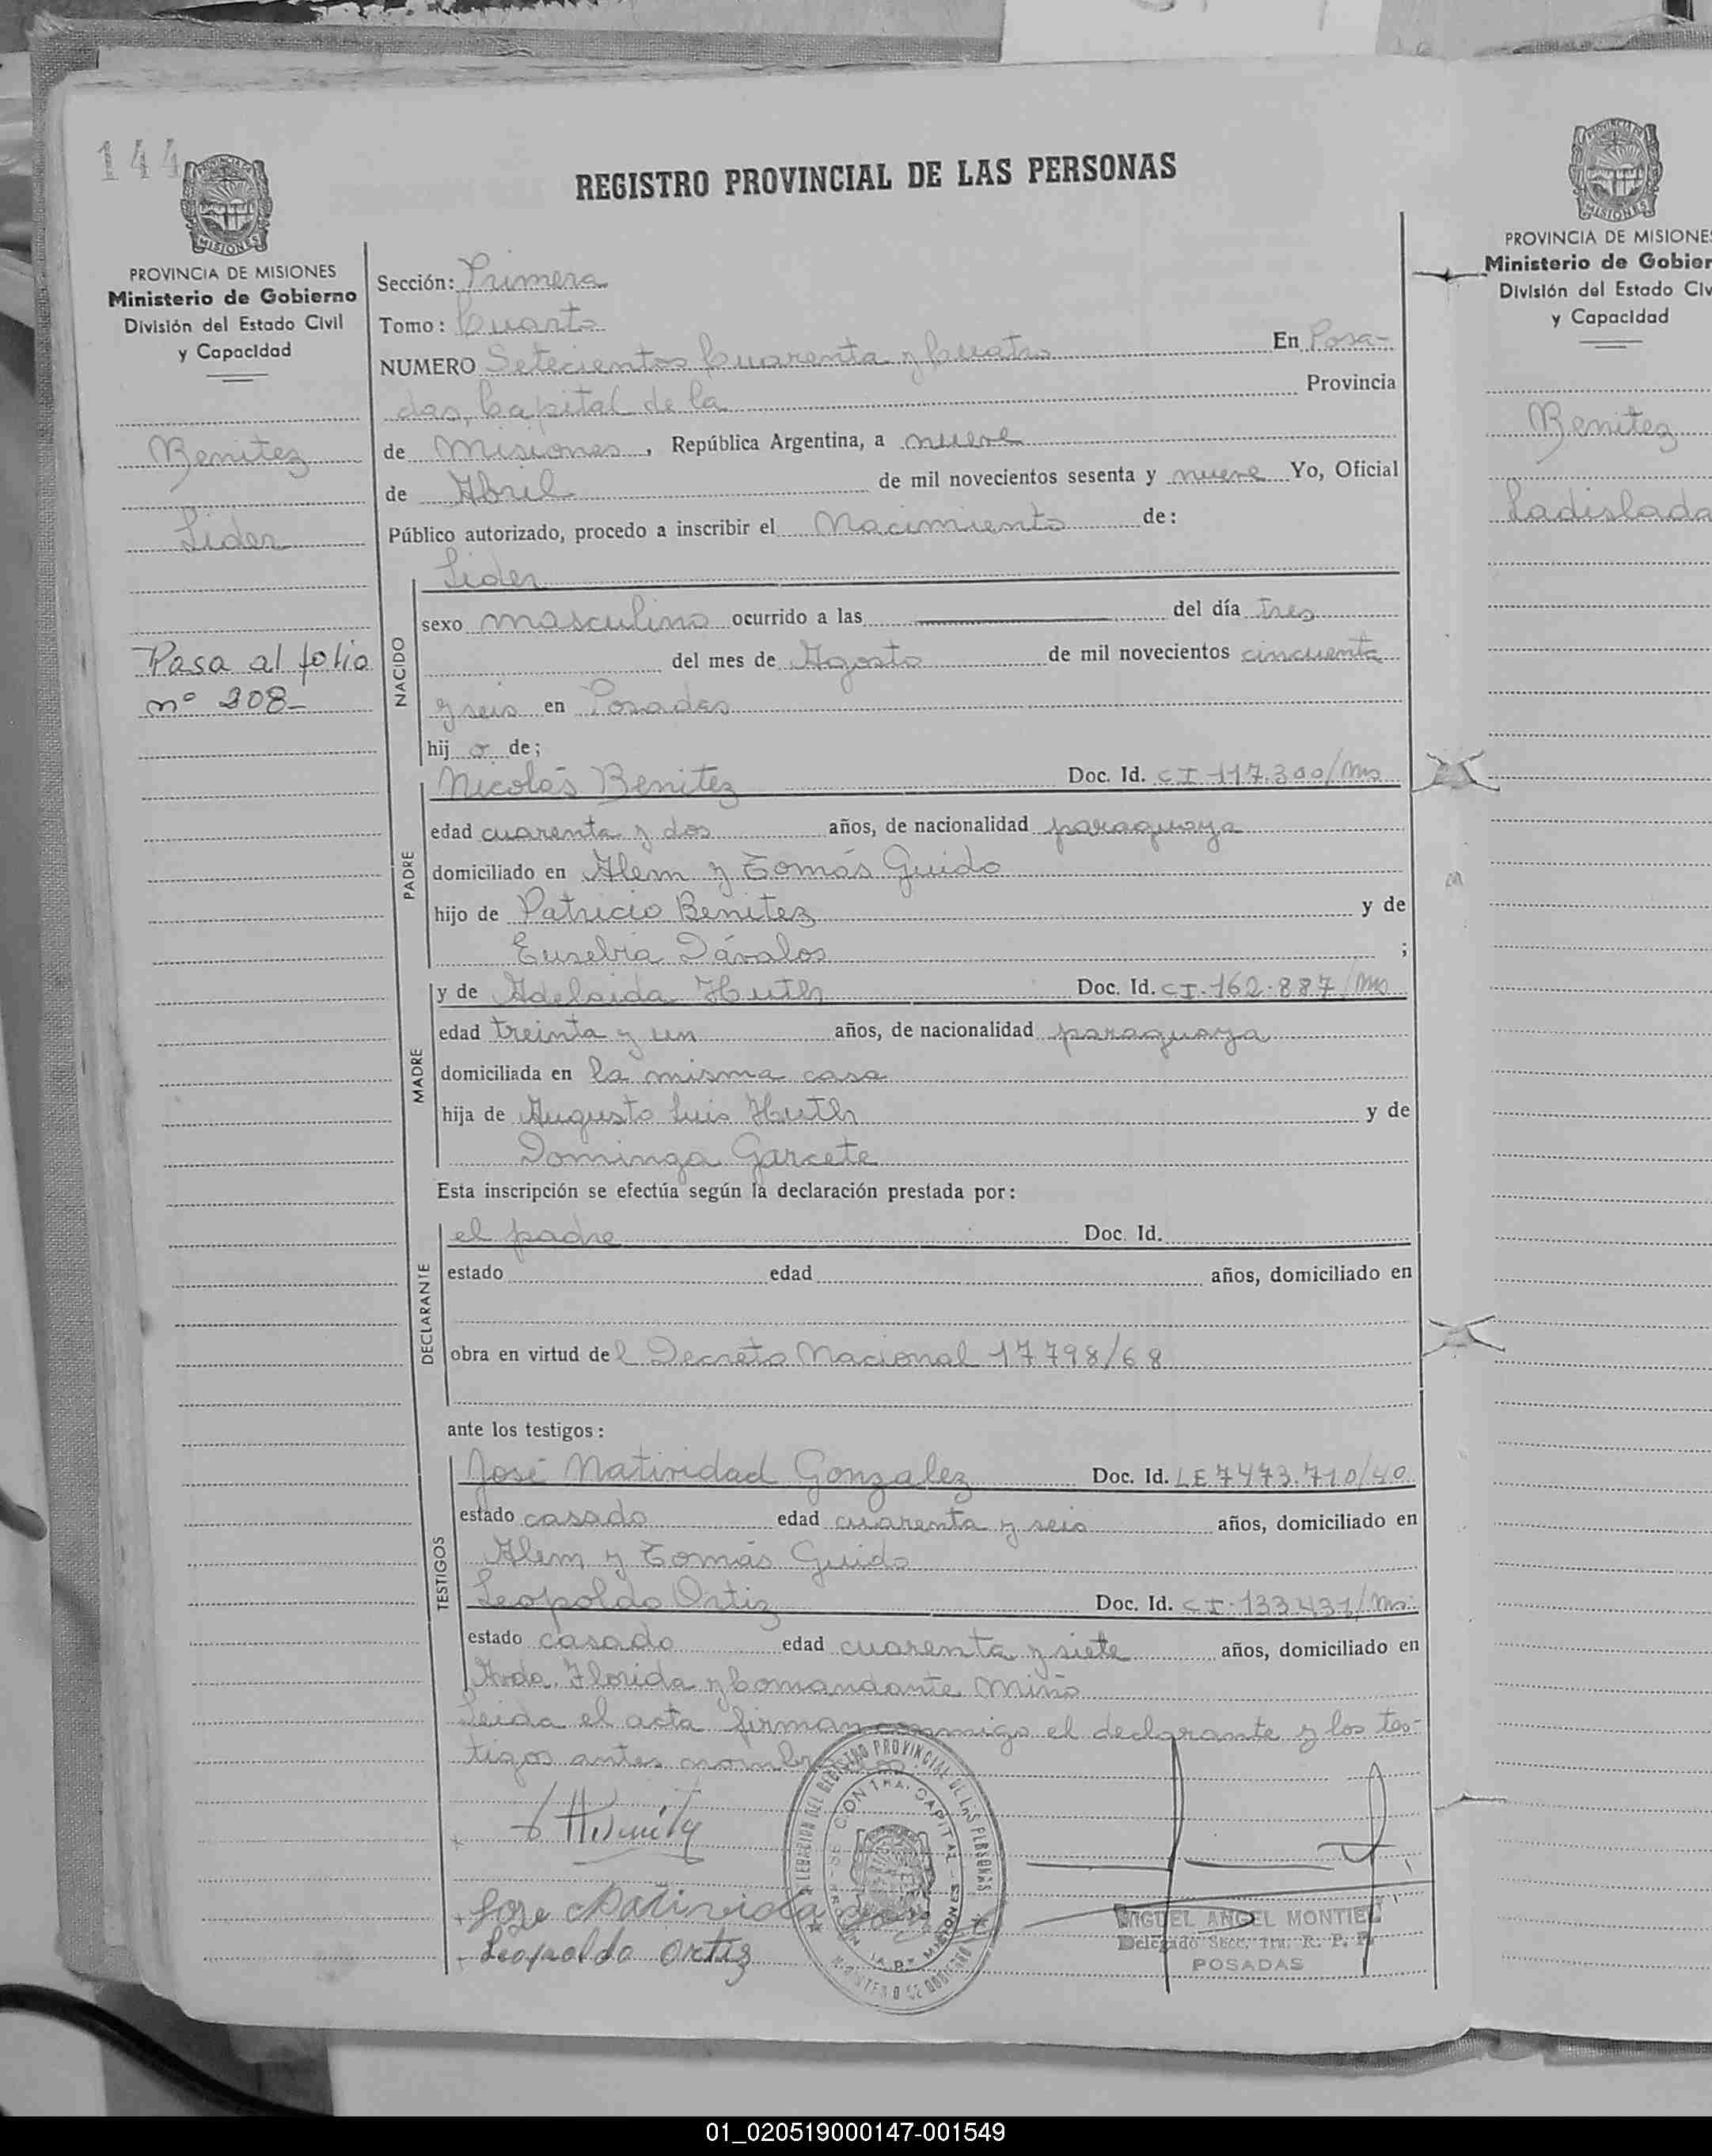 144
REGISTRO PROVINCIAL DE LAS PERSONAS
MISIONES
PROVINCIA DE MISIONES
Ministerio de Gobierno
División del Estado Civil
y Capacidad
Benitez
Lider
Pasa al folio
nº 208-
Sección: Primera
Tomo: Cuarto
NUMERO Setecientos Cuarenta y Cuatro En Posa-
das, Capital de la Provincia
de Misiones, República Argentina, a nueve
de Abril de mil novecientos sesenta y nueve Yo, Oficial
Público autorizado, procedo a inscribir el Nacimiento de:
Lider
NACIDO
sexo masculino ocurrido a las del día tres
del mes de Agosto de mil novecientos cincuenta
y seis en Posadas
hij o de;
PADRE
Nicolás Benitez Doc. Id. CI 117.300/Ms
edad cuarenta y dos años, de nacionalidad paraguaya
domiciliado en Alem y Tomás Guido
hijo de Patricio Benitez y de
Eusebia Dávalos ;
MADRE
y de Adelaida Huth Doc. Id. CI.162.887/Ms
edad treinta y un años, de nacionalidad paraguaya
domiciliada en la misma casa
hija de Augusto Luis Huth y de
Dominga Garcete
Esta inscripción se efectúa según la declaración prestada por:
DECLARANTE
el padre Doc. Id.
estado edad años, domiciliado en
obra en virtud del Decreto Nacional 17798/68
ante los testigos:
TESTIGOS
José Natividad Gonzalez Doc. Id. LE 7473.710/40
estado casado edad cuarenta y seis años, domiciliado en
Alem y Tomás Guido
Leopoldo Ortiz Doc. Id. CI.133.431/Ms.
estado casado edad cuarenta y siete años, domiciliado en
Avda. Florida y Comandante Miño
Leida el acta firman conmigo el declarante y los tes-
tigos antes
Jose Natividad
Leopoldo Ortiz
MIGUEL ANGEL MONTIEL
Delegado Secc. 1ra. R. P. P.
POSADAS
MISIONES
PROVINCIA DE MISIONES
Ministerio de Gobier
División del Estado Civ
y Capacidad
Benitez
Ladislada
01_020519000147-001549